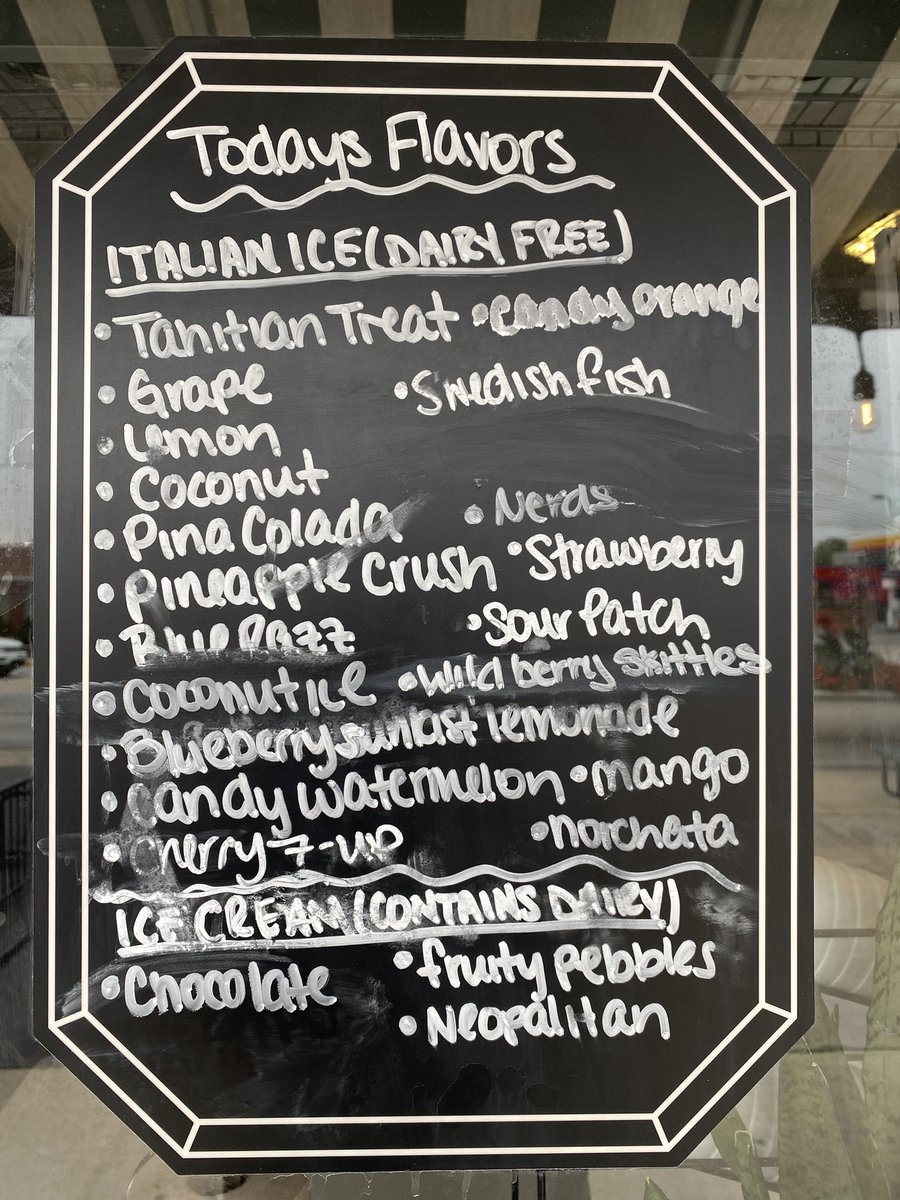 Todays Flavors
ITALIAN ICE (DAIRY FREE)
• Tahitian Treat • Candy orange
• Grape • Swedish fish
• Lemon
• Coconut
• Pina Colada • Nerds
• Pineapple Crush • Strawberry
• Blue Razz • Sour Patch
• Coconut ice • Wild berry skittles
• Blueberry sunkist lemonade
• Candy watermelon • mango
• Cherry 7-up • horchata
ICE CREAM (CONTAINS DAIRY)
• Chocolate • fruity pebbles
• Neopalitan